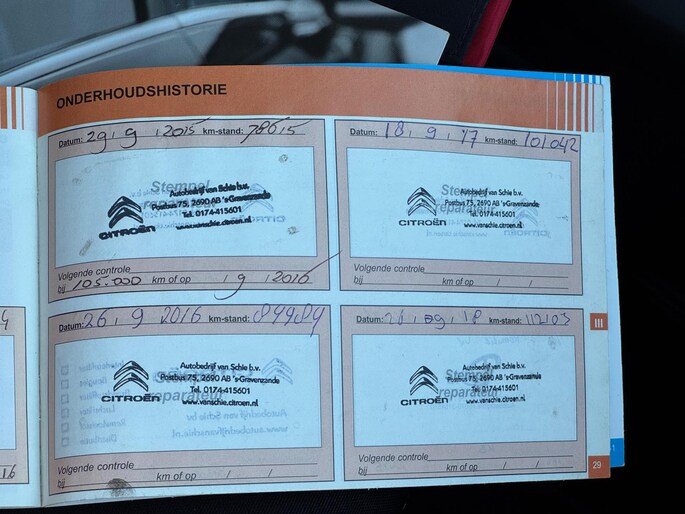 ONDERHOUDSHISTORIE
Datum: 29 , 9 , 2015 km-stand: 78615
Stempel
reparateur
Autobedrijf van Schie b.v.
Postbus 75, 2690 AB 's-Gravenzande
Tel. 0174-415601
www.vanschie.citroen.nl
CITROËN
Volgende controle
bij 105.000 km of op / 9 , 2016
Datum: 18 , 9 , '17 km-stand: 101042
Stempel
reparateur
Autobedrijf van Schie b.v.
Postbus 75, 2690 AB 's-Gravenzande
Tel. 0174-415601
www.vanschie.citroen.nl
CITROËN
Volgende controle
bij km of op / /
Datum: 26 , 9 2016 km-stand: 89989
Stempel
reparateur
Autobedrijf van Schie b.v.
Postbus 75, 2690 AB 's-Gravenzande
Tel. 0174-415601
www.vanschie.citroen.nl
CITROËN
Volgende controle
bij km of op / /
Datum: 28 , 09 , 18 km-stand: 112103
Stempel
reparateur
Autobedrijf van Schie b.v.
Postbus 75, 2690 AB 's-Gravenzande
Tel. 0174-415601
www.vanschie.citroen.nl
CITROËN
Volgende controle
bij km of op / /
III
29
16